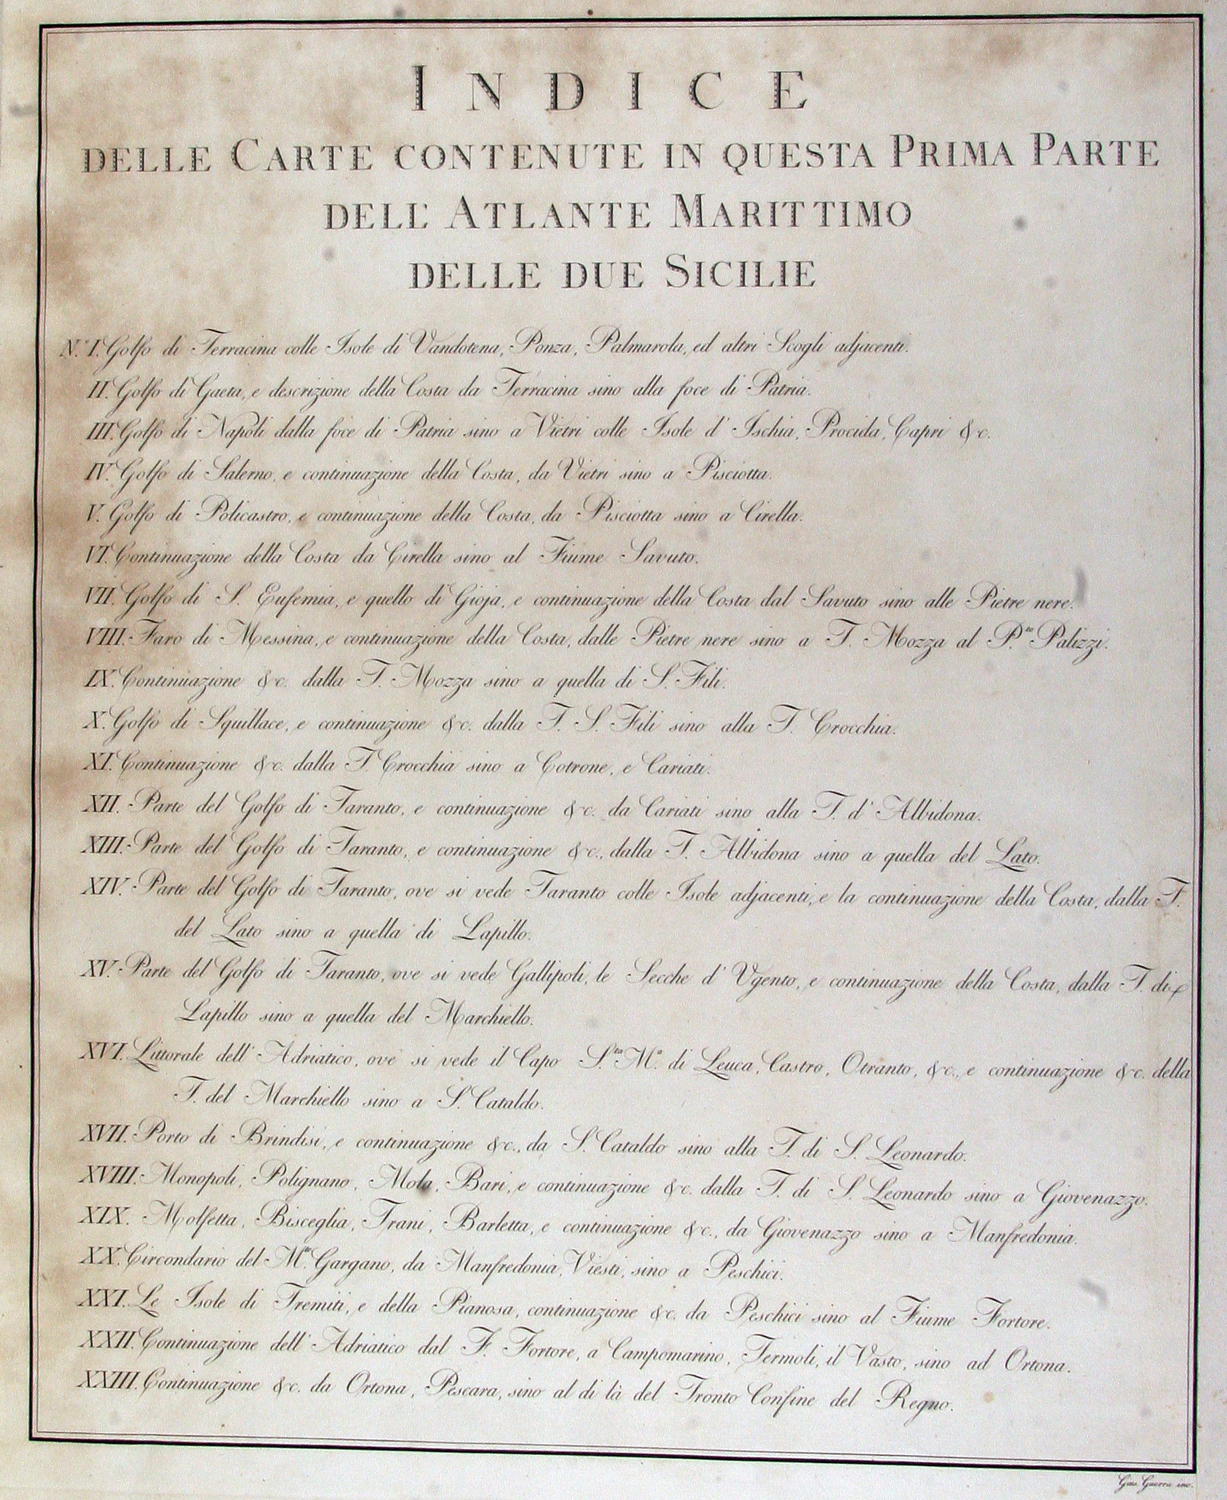 INDICE
DELLE CARTE CONTENUTE IN QUESTA PRIMA PARTE
DELL' ATLANTE MARITTIMO
DELLE DUE SICILIE
N.º I. Golfo di Terracina colle Isole di Vandotena, Ponza, Palmarola, ed altri Scogli adjacenti.
II. Golfo di Gaeta, e descrizione della Costa da Terracina sino alla foce di Patria.
III. Golfo di Napoli dalla foce di Patria sino a Vietri colle Isole d' Ischia, Procida, Capri &c.
IV. Golfo di Salerno, e continuazione della Costa, da Vietri sino a Pisciotta.
V. Golfo di Policastro, e continuazione della Costa, da Pisciotta sino a Cirella.
VI. Continuazione della Costa da Cirella sino al Fiume Savuto.
VII. Golfo di S. Eufemia, e quello di Gioja, e continuazione della Costa dal Savuto sino alle Pietre nere.
VIII. Faro di Messina, e continuazione della Costa, dalle Pietre nere sino a T. Mozza al P.to Palizzi.
IX. Continuazione &c. dalla T. Mozza sino a quella di S. Fili.
X. Golfo di Squillace, e continuazione &c. dalla T. S. Fili sino alla T. Crocchia.
XI. Continuazione &c. dalla T. Crocchia sino a Cotrone, e Cariati.
XII. Parte del Golfo di Taranto, e continuazione &c. da Cariati sino alla T. d' Albidona.
XIII. Parte del Golfo di Taranto, e continuazione &c., dalla T. Albidona sino a quella del Lato.
XIV. Parte del Golfo di Taranto, ove si vede Taranto colle Isole adjacenti, e la continuazione della Costa, dalla T.
del Lato sino a quella di Lapillo.
XV. Parte del Golfo di Taranto, ove si vede Gallipoli, le Secche d' Ugento, e continuazione della Costa, dalla T. di
Lapillo sino a quella del Marchiello.
XVI. Littorale dell' Adriatico, ove si vede il Capo S.ta M.a di Leuca, Castro, Otranto, &c., e continuazione &c. della
T. del Marchiello sino a S. Cataldo.
XVII. Porto di Brindisi, e continuazione &c., da S. Cataldo sino alla T. di S. Leonardo.
XVIII. Monopoli, Polignano, Mola, Bari, e continuazione &c. dalla T. di S. Leonardo sino a Giovenazzo.
XIX. Molfetta, Bisceglia, Trani, Barletta, e continuazione &c., da Giovenazzo sino a Manfredonia.
XX. Circondario del M.te Gargano, da Manfredonia, Viesti, sino a Peschici.
XXI. Le Isole di Tremiti, e della Pianosa, continuazione &c. da Peschici sino al Fiume Fortore.
XXII. Continuazione dell' Adriatico dal F. Fortore, a Campomarino, Termoli, il Vasto, sino ad Ortona.
XXIII. Continuazione &c. da Ortona, Pescara, sino al di là del Tronto Confine del Regno.
Gius. Guerra inc.